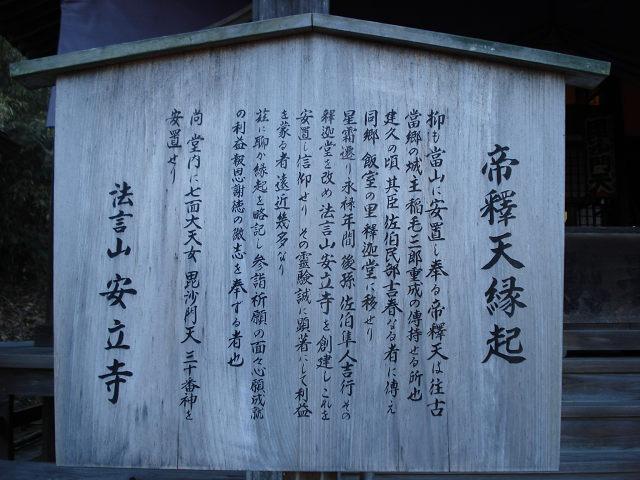 帝釋天縁起
抑も當山に安置し奉る帝釋天は往古
當郷の城主稲毛三郎重成の傳持せる所也
建久の頃其臣佐伯民部吉春なる者に傳え
同郷飯室の里釋迦堂に移せり
星霜遷り永禄年間後孫佐伯隼人吉行その
釋迦堂を改め法言山安立寺を創建しこれを
安置し信仰せりその靈験誠に顕著にして利益
を蒙る者遠近幾多なり
茲に聊か縁起を略記し参詣祈願の面々心願成就
の利益報恩謝徳の微志を奉ずる者也
尚堂内に七面大天女毘沙門天三十番神を
安置せり
法言山安立寺